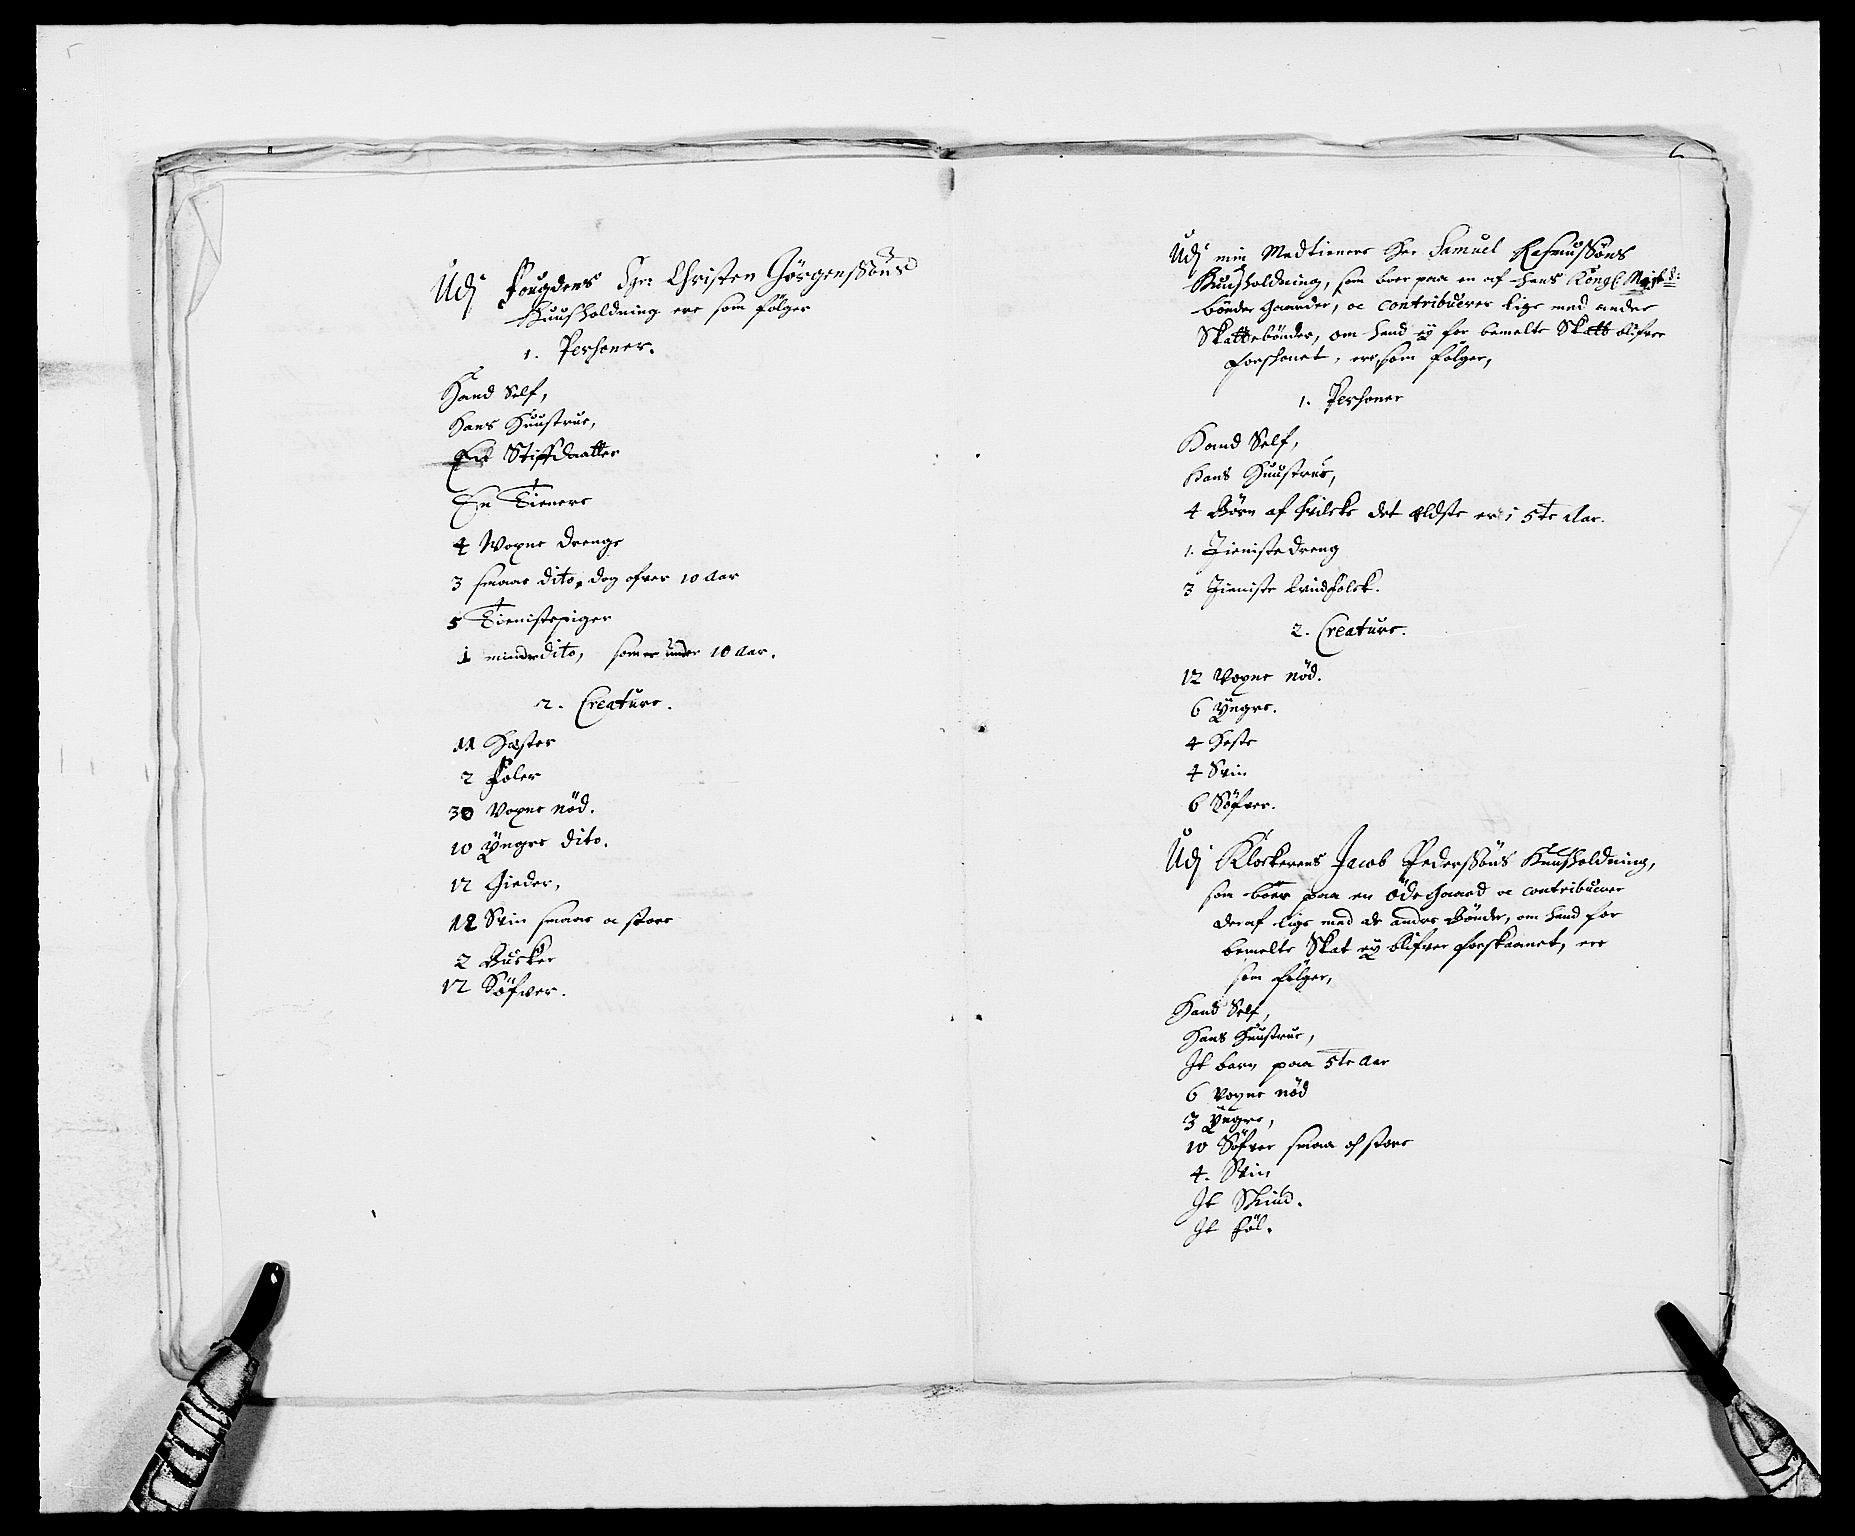 Udj Fougdens Sr: Christen Görgenssöns
Huusholdning ere som fölger
1. Pershoner.
Hand Self,
Hans Huustrue,
En Stifdaatter
En Tienere
4 Woxne drenge
3 smaae dito, dog ofver 10 Aar
5 Tienistepiger
1 mindre dito, som er under 10 Aar.
2. Creature.
11 Hæster
2 Föler
30 Voxne nöd.
10 Yngre dito.
12 Gieder,
12 Svin smaae oc store
2 Bucker
12 Söfver.
Udj min Medtieners Her Samuel Rasmussöns
Huusholdning, som boer paa en af Hans Kongl. Mayst:
bönder Gaarder, oc contribuerer lige med andre
Skattebönder, om hand ey for bemelte Skatt blifver
forskonet, ere som fölger,
1. Pershoner
Hand Self,
Hans Huustrue,
4 Börn af hvilcke det ældste er i 5te Aar.
1. Tienistedreng
3 Tieniste Qvindfolck.
2. Creature.
12 Voxne nöd.
6 Yngre.
4 Heste
4 Svin
6 Söfver.
Udj Klockerens Jacob Pederssöns Huusholdning,
som boer paa en ödegaard oc contribuerer
deraf lige med de andre Bönder, om hand for
bemelte Skat ey blifver forskaanet, ere
som fölger,
Hand Self,
Hans Huustrue,
It barn paa 5te Aar
6 voxne nöd
3 Yngre,
10 Söfver smaa oc store
4. Svin
It
It föl.